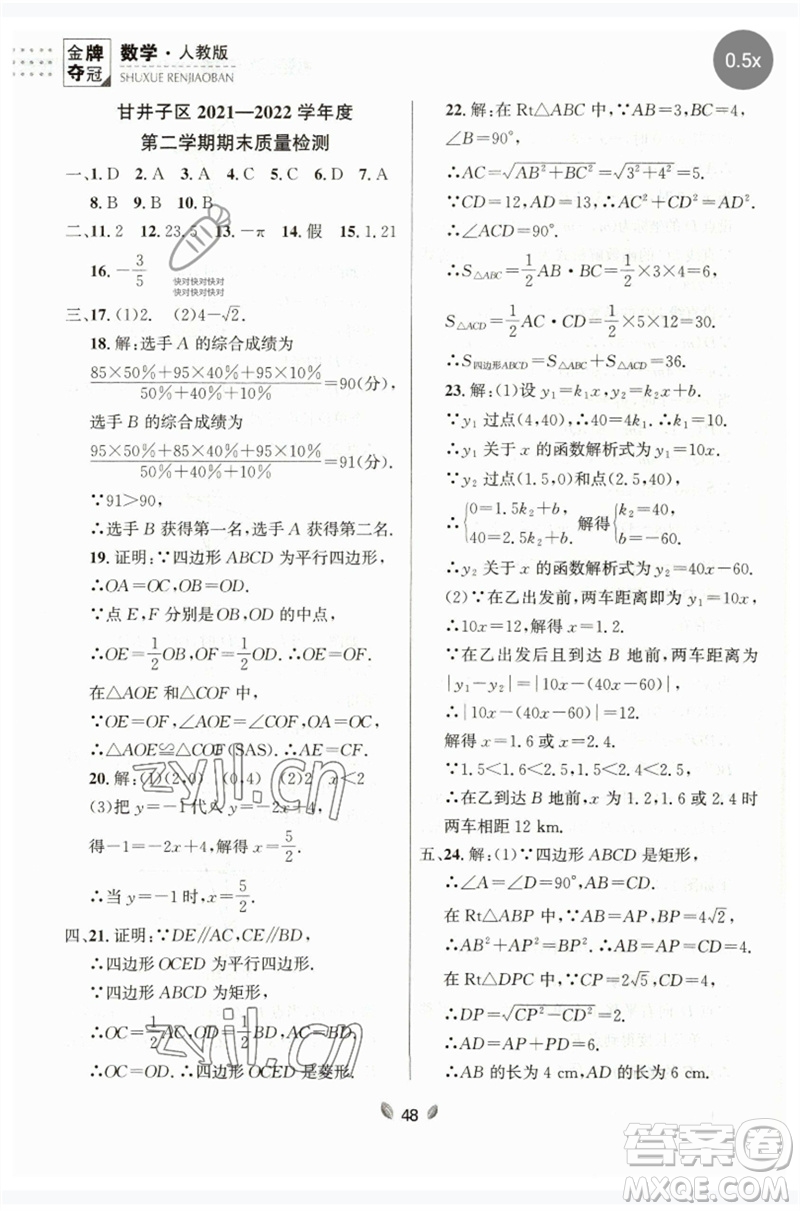 金牌夺冠 数学·人教版
SHUXUE RENJIAOBAN
0.5x
甘井子区 2021—2022 学年度
第二学期期末质量检测
一、1. D 2. A 3. A 4. C 5. C 6. D 7. A
8. B 9. B 10. B
二、11. 2 12. 23.5 13. -π 14. 假 15. 1.21
16. -3/5
快对快对快对
快对快对快对
三、17. (1)2. (2)4-√2.
18. 解:选手 A 的综合成绩为
(85×50%+95×40%+95×10%)/(50%+40%+10%)=90(分),
选手 B 的综合成绩为
(95×50%+85×40%+95×10%)/(50%+40%+10%)=91(分).
∵91>90,
∴选手 B 获得第一名,选手 A 获得第二名.
19. 证明:∵四边形 ABCD 为平行四边形,
∴OA=OC,OB=OD.
∵点 E,F 分别是 OB,OD 的中点,
∴OE=1/2OB,OF=1/2OD.∴OE=OF.
在△AOE 和△COF 中,
∵AO=OC,∠AOE=∠COF,OE=OF,
∴△AOE≌△COF(SAS).∴AE=CF.
20. 解:(1)(2,0) (0,4) (2)x<2
(3)把 y=-1 代入 y=-2x+4,
得-1=-2x+4,解得 x=5/2.
∴当 y=-1 时,x=5/2.
四、21. 证明:∵DE//AC,CE//BD,
∴四边形 OCED 为平行四边形.
∵四边形 ABCD 为矩形,
∴OC=1/2AC,OD=1/2BD,AC=BD.
∴OC=OD.∴四边形 OCED 是菱形.
zyjl.cn
zyjl.cn
22. 解:在 Rt△ABC 中,∵AB=3,BC=4,
∠B=90°,
∴AC=√(AB²+BC²)=√(3²+4²)=5.
∵CD=12,AD=13,∴AC²+CD²=AD².
∴∠ACD=90°.
∴S△ABC=1/2AB·BC=1/2×3×4=6,
S△ACD=1/2AC·CD=1/2×5×12=30.
∴S四边形ABCD=S△ABC+S△ACD=36.
23. 解:(1)设 y₁=k₁x,y₂=k₂x+b.
∵y₁ 过点(4,40),∴40=4k₁,∴k₁=10.
∴y₁ 关于 x 的函数解析式为 y₁=10x.
∵y₂ 过点(1.5,0)和点(2.5,40),
∴{0=1.5k₂+b, 40=2.5k₂+b, 解得{k₂=40, b=-60.
∴y₂ 关于 x 的函数解析式为 y₂=40x-60.
(2)∵在乙出发前,两车距离即为 y₁=10x,
∴10x=12,解得 x=1.2.
∵在乙出发后且到达 B 地前,两车距离为
|y₁-y₂|=|10x-(40x-60)|,
∴|10x-(40x-60)|=12.
解得 x=1.6或 x=2.4.
∵1.5<1.6<2.5,1.5<2.4<2.5,
∴在乙到达 B 地前,x 为 1.2,1.6 或 2.4 时
两车相距 12 km.
五、24. 解:(1)∵四边形 ABCD 是矩形,
∴∠A=∠D=90°,AB=CD.
在 Rt△ABP 中,∵AB=AP,BP=4√2,
∴AB²+AP²=BP².∴AB=AP=4.
在 Rt△DPC 中,∵CP=2√5,CD=4,
∴DP=√(CP²-CD²)=2.
∴AD=AP+PD=6.
∴AB 的长为 4 cm,AD 的长为 6 cm.
48
答案卷
MXQE.COM